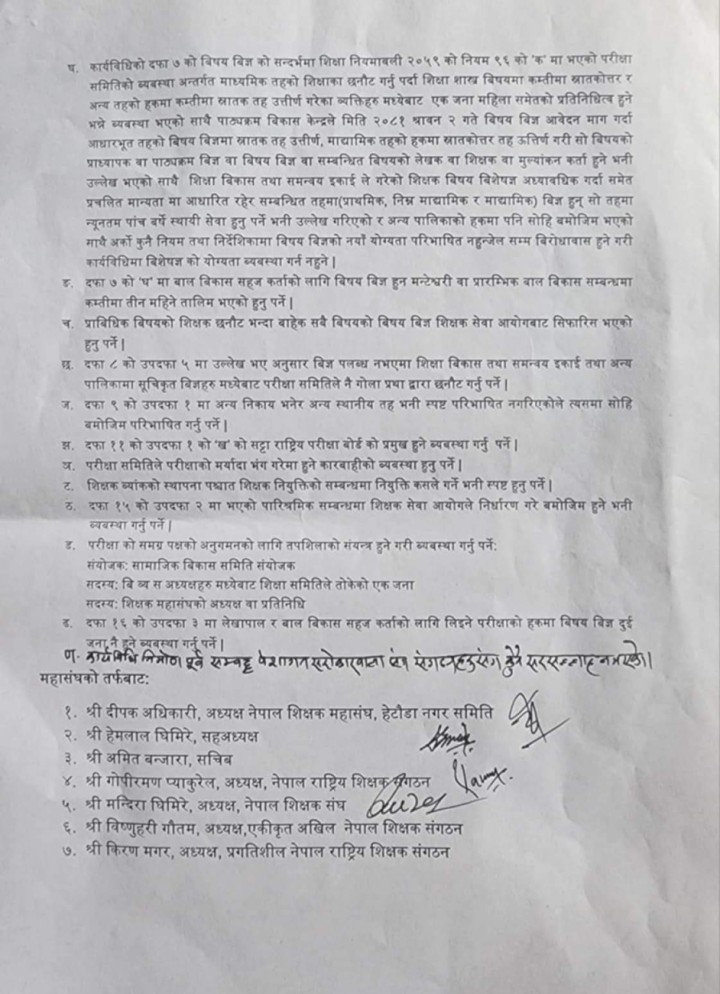 घ. कार्यविधिको दफा ७ को बिषय बिज्ञ को सन्दर्भमा शिक्षा नियमावली २०५९ को नियम ९६ को 'क' मा भएको परीक्षा
समितिको ब्यवस्था अन्तर्गत माध्यमिक तहको शिक्षाका छनौट गर्नु पर्दा शिक्षा शाख बिषयमा कम्तीमा स्नातकोत्तर र
अन्य तहको हकमा कम्तीमा स्नातक तह उत्तीर्ण गरेका ब्यक्तिहरु मध्येबाट एक जना महिला समेतको प्रतिनिधित्व हुने
भन्ने ब्यवस्था भएको साथै पाठ्यक्रम बिकास केन्द्रले मिति २०८१ श्रावन २ गते बिषय बिज्ञ आवेदन माग गर्दा
आधारभूत तहको बिषय बिज्ञमा स्नातक तह उत्तीर्ण, माद्यामिक तहको हकमा स्नातकोत्तर तह ऊत्तिर्ण गरी सो बिषयको
प्राध्यापक वा पाठ्यक्रम बिज्ञ वा बिषय बिज्ञ वा सम्बन्धित बिषयको लेखक वा शिक्षक वा मुल्यांकन कर्ता हुने भनी
उल्लेख भएको साथै शिक्षा बिकास तथा समन्वय इकाई ले गरेको शिक्षक बिषय बिशेषज्ञ अध्यावधिक गर्दा समेत
प्रचलित मान्यता मा आधारित रहेर सम्बन्धित तहमा(प्राथमिक, निम्न माद्यामिक र माद्यामिक) बिज्ञ हुन् सो तहमा
न्यूनतम पांच बर्षे स्थायी सेवा हुनु पर्ने भनी उल्लेख गरिएको र अन्य पालिकाको हकमा पनि सोहि बमोजिम भएको
साथै अर्को कुनै नियम तथा निर्देशिकामा बिषय बिज्ञको नयाँ योग्यता परिभाषित नहुन्जेल सम्म बिरोधावास हुने गरी
कार्यविधिमा बिशेषज्ञ को योग्यता ब्यवस्था गर्न नहुने |
ङ. दफा ७ को 'घ' मा बाल बिकास सहज कर्ताको लागि बिषय बिज्ञ हुन मन्टेश्वरी वा प्रारम्भिक बाल बिकास सम्बन्धमा
कम्तीमा तीन महिने तालिम भएको हुनु पर्ने |
च. प्राबिधिक बिषयको शिक्षक छनौट भन्दा बाहेक सबै बिषयको बिषय बिज्ञ शिक्षक सेवा आयोगबाट सिफारिस भएको
हुनु पर्ने |
छ. दफा ८ को उपदफा ५ मा उल्लेख भए अनुसार बिज्ञ पलब्ध नभएमा शिक्षा बिकास तथा समन्वय इकाई तथा अन्य
पालिकामा सूचिकृत बिज्ञहरु मध्येबाट परीक्षा समितिले नै गोला प्रथा द्वारा छनौट गर्नु पर्ने |
ज. दफा ९ को उपदफा १ मा अन्य निकाय भनेर अन्य स्थानीय तह भनी स्पष्ट परिभाषित नगरिएकोले त्यसमा सोहि
बमोजिम परिभाषित गर्नु पर्ने |
झ. दफा ११ को उपदफा १ को 'ख' को सट्टा राष्ट्रिय परीक्षा बोर्ड को प्रमुख हुने ब्यवस्था गर्नु पर्ने |
ञ. परीक्षा समितिले परीक्षाको मर्यादा भंग गरेमा हुने कारबाहीको ब्यवस्था हुनु पर्ने |
ट. शिक्षक ब्यांकको स्थापना पश्चात शिक्षक नियुक्तिको सम्बन्धमा नियुक्ति कसले गर्ने भनी स्पष्ट हुनु पर्ने |
ठ. दफा १५ को उपदफा २ मा भएको पारिश्रमिक सम्बन्धमा शिक्षक सेवा आयोगले निर्धारण गरे बमोजिम हुने भनी
ब्यवस्था गर्नु पर्ने |
ड. परीक्षा को समग्र पक्षको अनुगमनको लागि तपशिलाको संयन्त्र हुने गरी ब्यवस्था गर्नु पर्ने:
संयोजक: सामाजिक बिकास समिति संयोजक
सदस्य: बि ब्य स अध्यक्षहरु मध्येबाट शिक्षा समितिले तोकेको एक जना
सदस्य: शिक्षक महासंघको अध्यक्ष वा प्रतिनिधि
ढ. दफा १६ को उपदफा ३ मा लेखापाल र बाल बिकास सहज कर्ताको लागि लिइने परीक्षाको हकमा बिषय बिज्ञ दुई
जना नै हुने ब्यवस्था गर्नु पर्ने |
ण. कार्यविधि निर्माण पूर्व सम्बद्ध पेशागत सरोकारवाला
महासंघको तर्फबाट:
१. श्री दीपक अधिकारी, अध्यक्ष नेपाल शिक्षक महासंघ, हेटौडा नगर समिति
२. श्री हेमलाल घिमिरे, सहअध्यक्ष
३. श्री अमित बन्जारा, सचिब
४. श्री गोपीरमण प्याकुरेल, अध्यक्ष, नेपाल राष्ट्रिय शिक्षक संगठन
५. श्री मन्दिरा घिमिरे, अध्यक्ष, नेपाल शिक्षक संघ
६. श्री विष्णुहरी गौतम, अध्यक्ष,एकीकृत अखिल नेपाल शिक्षक संगठन
७. श्री किरण मगर, अध्यक्ष, प्रगतिशील नेपाल राष्ट्रिय शिक्षक संगठन